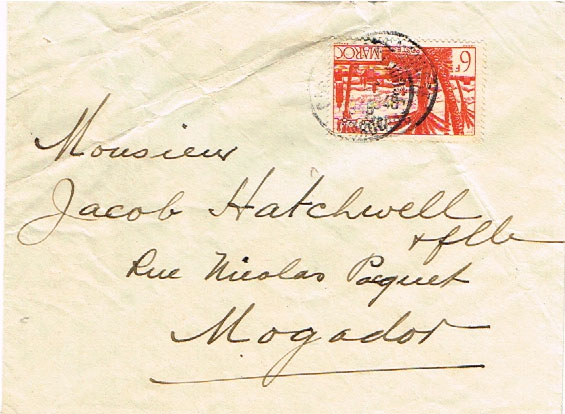 6F MAROC
Monsieur
Jacob Hatchwell
& flle
Rue Nicolas Paquet
Mogador